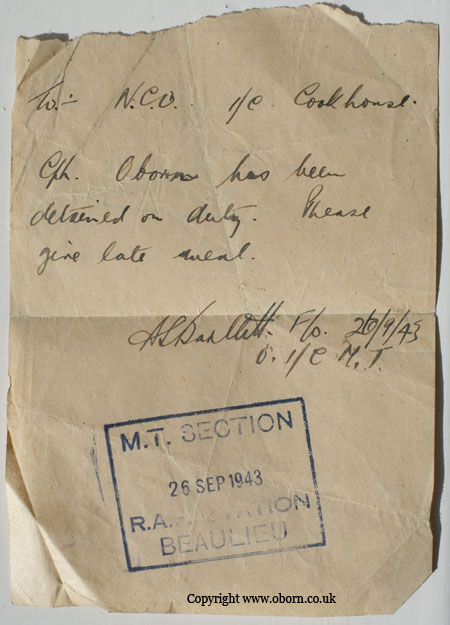 To:- N.C.O. i/c Cookhouse.
Cpl. Oborn has been
detained on duty. Please
give late meal.
A S Bartlett. F/O. 26/9/43
O. i/c M.T.
M.T. SECTION
26 SEP 1943
R.A.F. STATION
BEAULIEU
Copyright www.oborn.co.uk